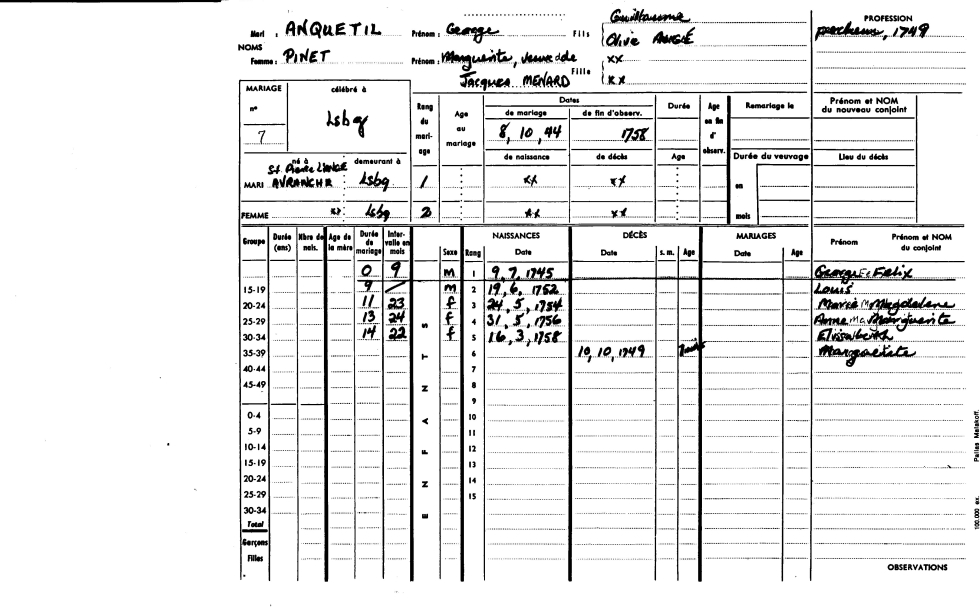 Guillaume PROFESSION
Mari : ANQUETIL Prénom : George Fils Olive ANGÉ pecheur, 1749
NOMS
Femme : PINET Prénom : Marguerite, veuve de Fille xx
Jacques MENARD xx
MARIAGE célébré à
n° 7 Lsbg
Rang du mariage Age au mariage Dates Durée Age en fin d'observ. Remariage le Prénom et NOM du nouveau conjoint
de mariage de fin d'observ.
8, 10, 44 1758
de naissance de décès Age Durée du veuvage Lieu du décès
né à demeurant à
MARI AVRANCHE Lsbg 1 xx xx en
FEMME xx Lsbg 2 xx xx mois
Groupe Durée (ans) Nbre de nais. Age de la mère Durée de mariage Intervalle en mois Sexe Rang NAISSANCES Date DÉCÈS Date s. m. Age MARIAGES Date Age Prénom Prénom et NOM du conjoint
ENFANTS
0 9 M 1 9, 7, 1745 George Felix
15-19 9 M 2 19, 6, 1752 Louis
20-24 11 23 f 3 24, 5, 1754 Marie Magdelene
25-29 13 24 f 4 31, 5, 1756 Anne Marguerite
30-34 14 22 f 5 16, 3, 1758
35-39 6 10, 10, 1749
40-44 7
45-49 8
9
0-4 10
5-9 11
10-14 12
15-19 13
20-24 14
25-29 15
30-34
Total
Garçons
Filles
OBSERVATIONS
100.000 ex.